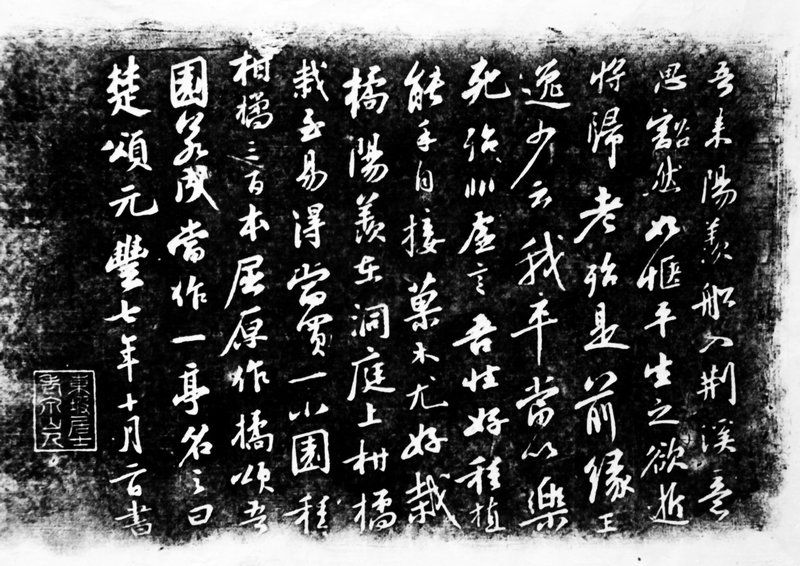 吾來陽羨船入荊溪意
思豁然如愜平生之欲逝
將歸老殆是前緣王
逸少云我卒當以樂
死殆非虛言吾性好種植
能手自接菓木尤好栽
橘陽羨在洞庭上柑橘
栽至易得當買一小園種
柑橘三百本屈原作橘頌吾
園若成當作一亭名之曰
楚頌元豐七年十月二日書
東坡居士
老泉山人